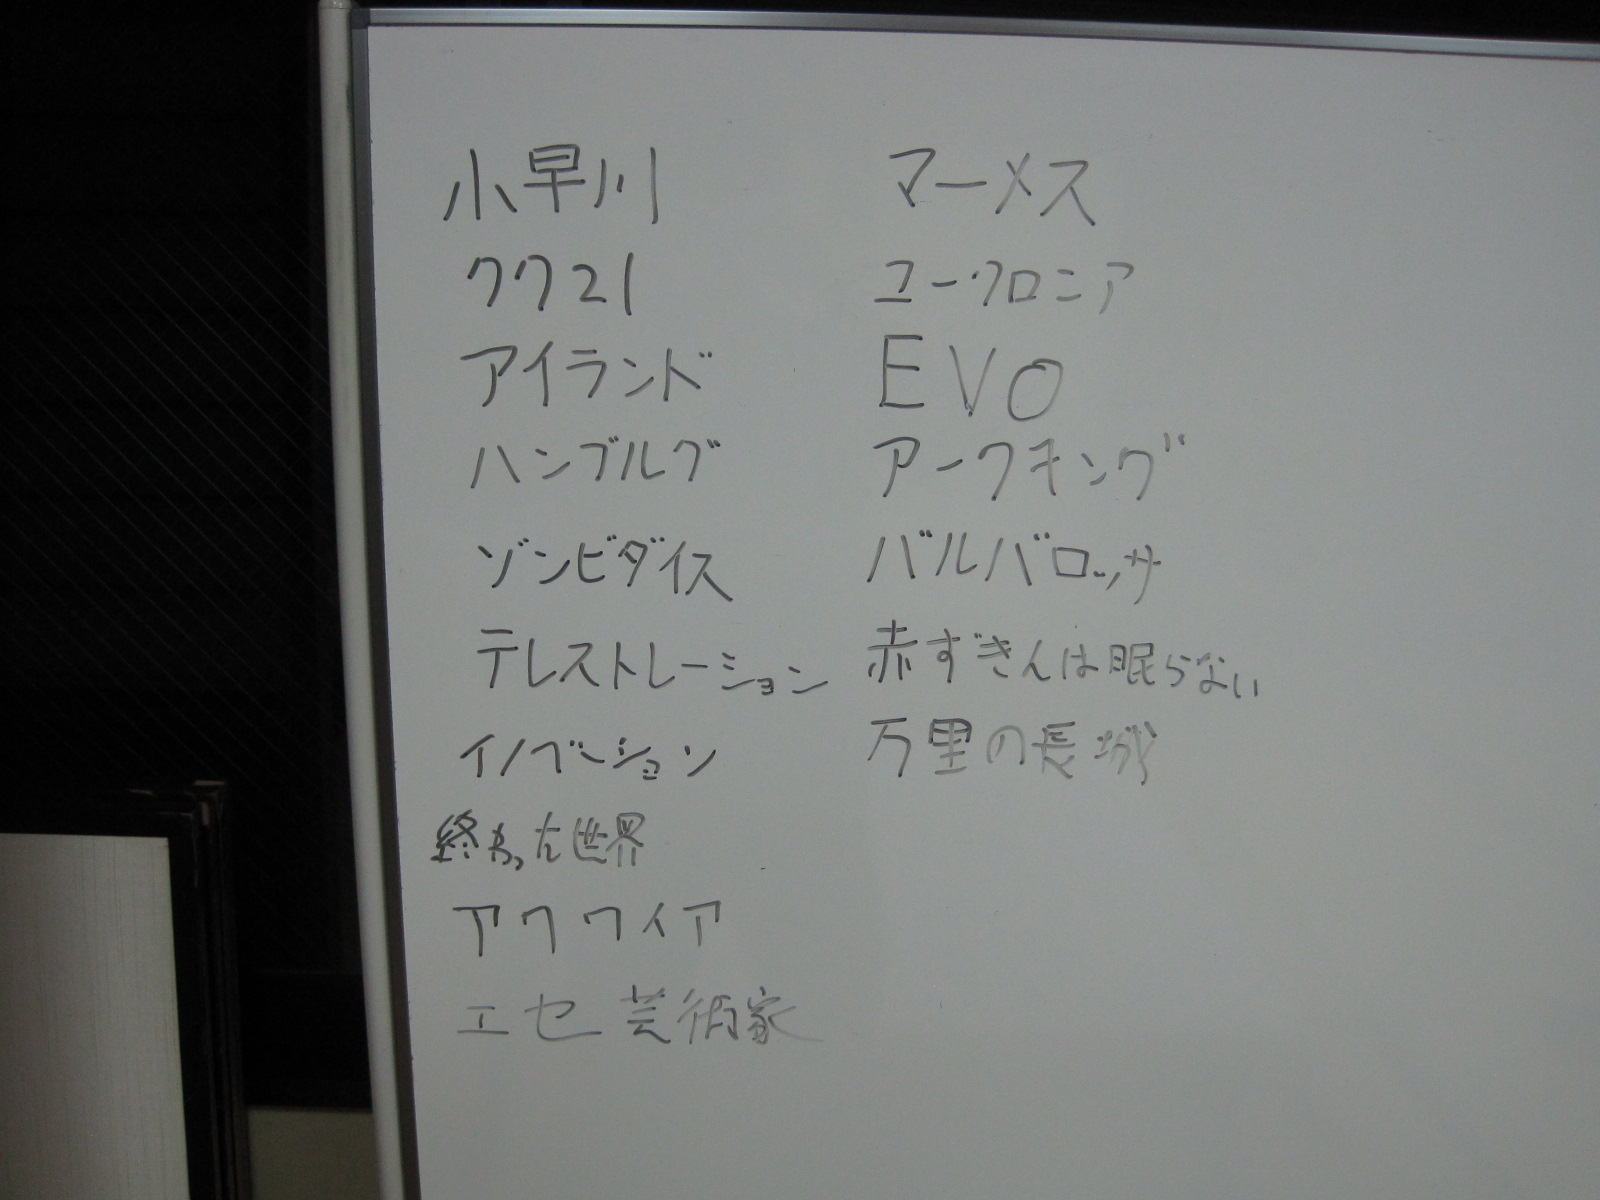 小早川
クク21
アイランド
ハンブルグ
ゾンビダイス
テレストレーション
イノベーション
終わった世界
アクワイア
エセ芸術家
マーメス
ユークロニア
EVO
アークキング
バルバロッサ
赤ずきんは眠らない
万里の長城